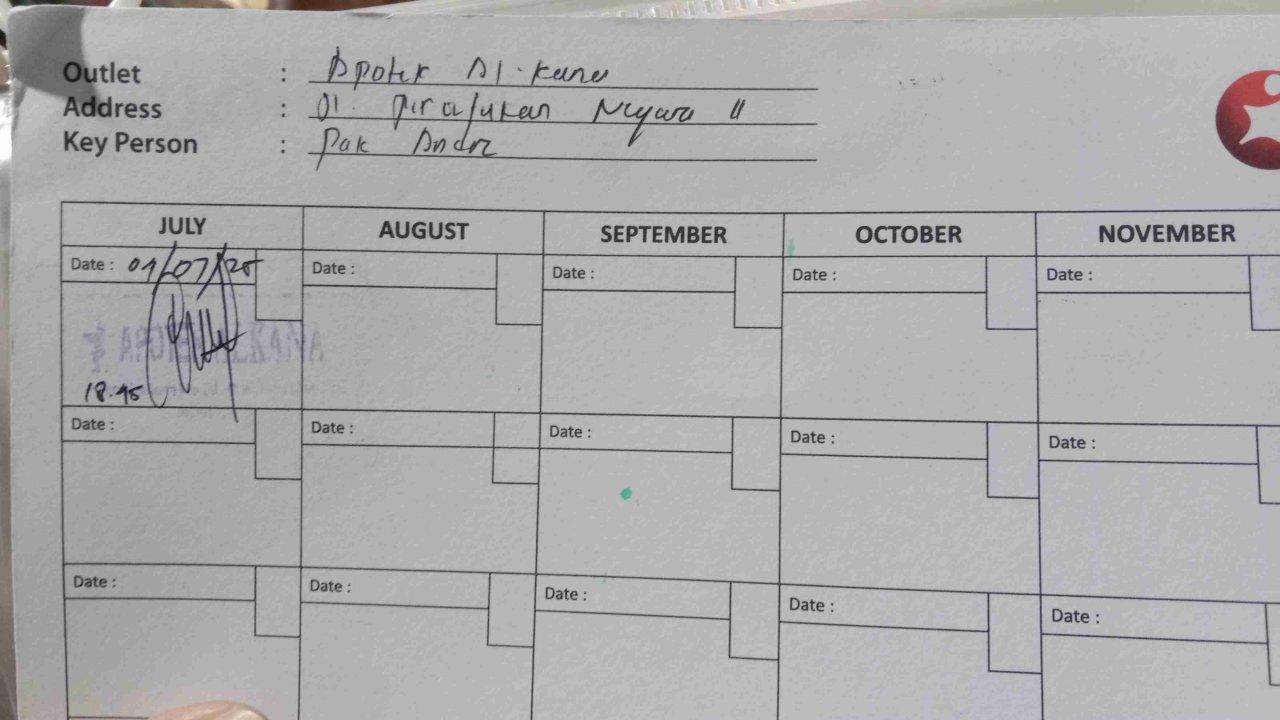 Outlet : Apotek Al-
Address : Jl. Negara II
Key Person : Pak Andre
JULY AUGUST SEPTEMBER OCTOBER NOVEMBER
Date : 01/07/25 Date : Date : Date : Date :
18.45
Date : Date : Date : Date : Date :
Date : Date : Date : Date : Date :